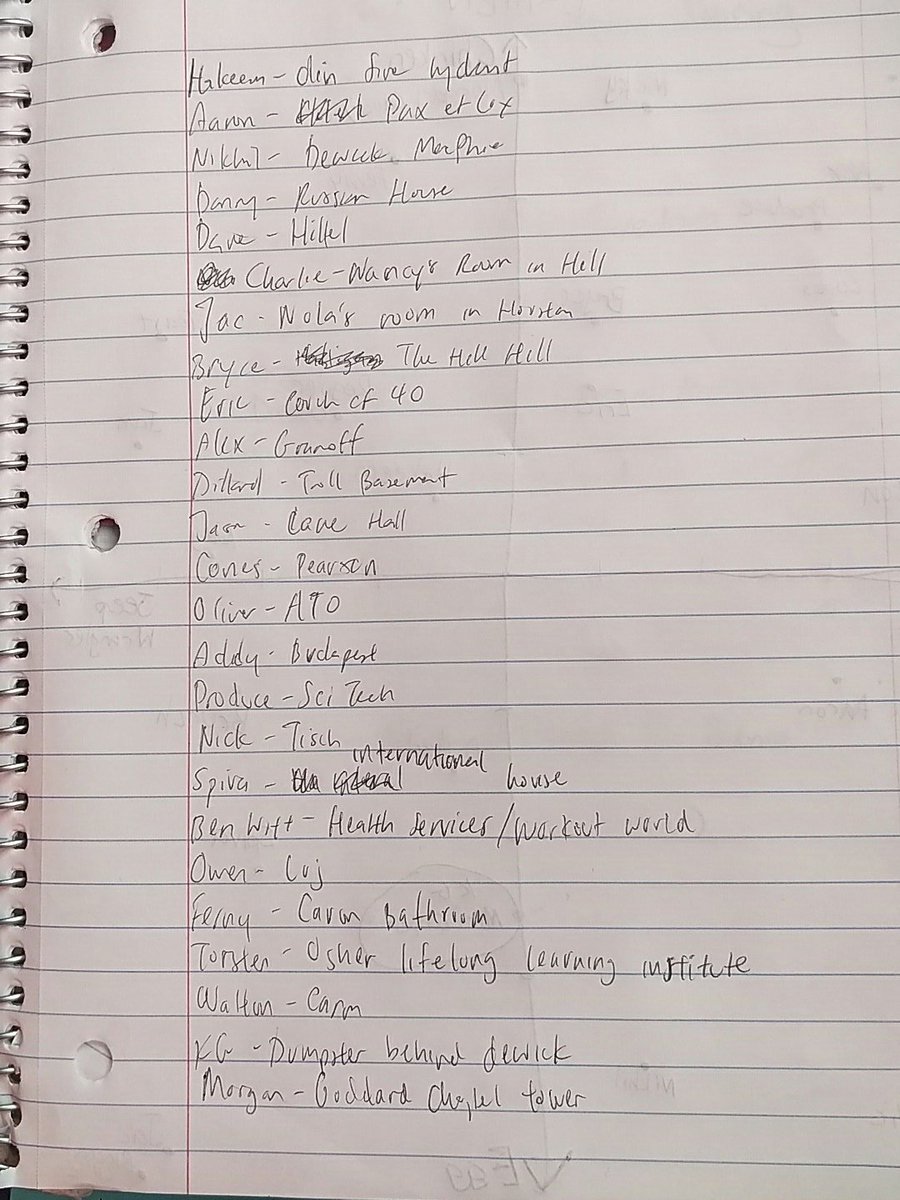 Hakeem - Olin five hydrant
Aaron - Pax et Lox
Nikhil - Dewick MacPhie
Danny - Russian House
Dave - Hillel
Charlie - Nancy's Room in Hill
Jac - Nola's room in Houston
Bryce - The Hill Hill
Eric - Couch of 40
Alex - Granoff
Dillard - Basement
Jason - Lane Hall
Cones - Pearson
Oliver - ATO
Addy - Budapest
Produce - Sci Tech
Nick - Tisch
Spiva - international house
Ben Witt - Health Services/Workout world
Owen -
Ferny - Bathroom
Torsten - Osher lifelong learning institute
Walton - Carm
KG - Dumpster behind dewick
Morgan - Goddard Chapel tower